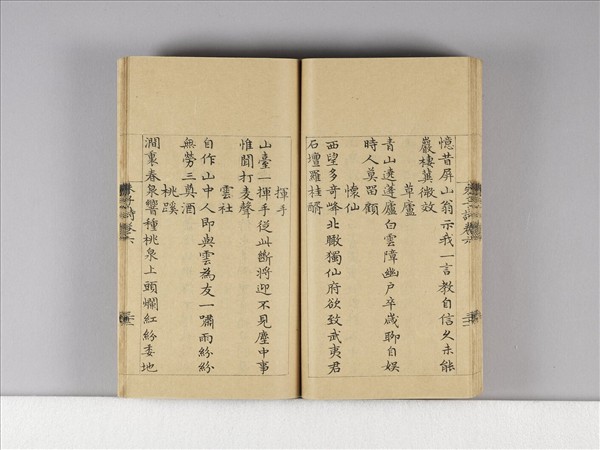 憶昔屏山翁示我一言教自信久未能
巖棲冀微效
草廬
青山遶蓬廬白雲障幽户卒歲聊自娛
時人莫留顧
懷仙
西望多奇峰北瞰獨仙府欲致武夷君
石壇羅桂醑
揮手
山臺一揮手從此斷將迎不見塵中事
惟聞打麥聲
雲社
自作山中人即與雲為友一嘯雨紛紛
無勞三奠酒
桃蹊
澗裏春泉響種桃泉上頭爛紅紛委地